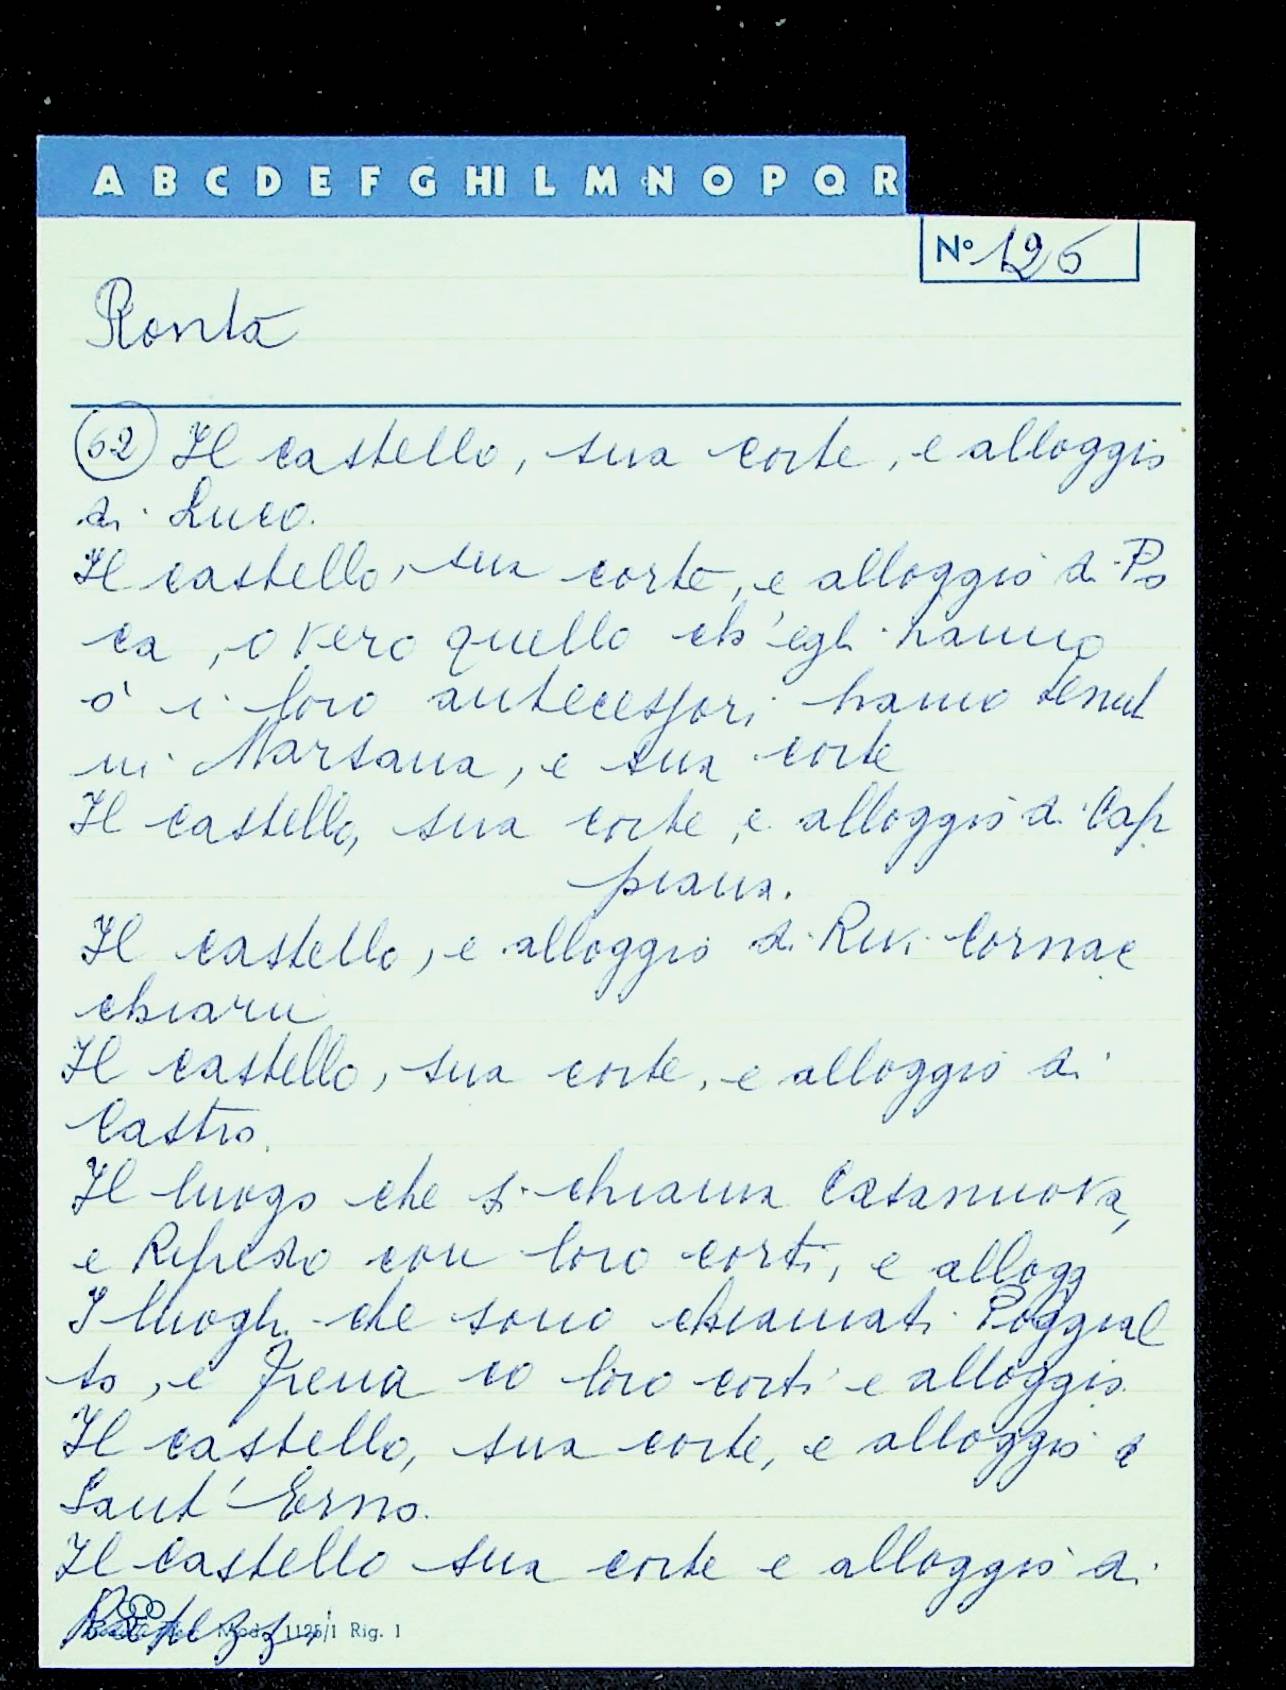 A B C D E F G HI L M N O P Q R
N° 126
Ronta
62 Il castello, sua corte, e alloggio
di Luco.
Il castello, sua corte, e alloggio di Po
ca, o vero quello ch'egli hanno
ò i loro antecessori hanno tenut
in Marsana, e sua corte
Il castello, sua corte, e alloggio di Cap
piana.
Il castello, e alloggio di Cornac
chiaru
Il castello, sua corte, e alloggio di
Castro.
Il luogo che si chiama Casanuova,
e Rifredo con loro corti, e allogg
I luoghi che sono chiamati Poggial
to, e Frena co loro corti e alloggio.
Il castello, sua corte, e alloggio
Sant' Erno.
Il castello sua corte e alloggio di
Mod. 1125/1 Rig. 1